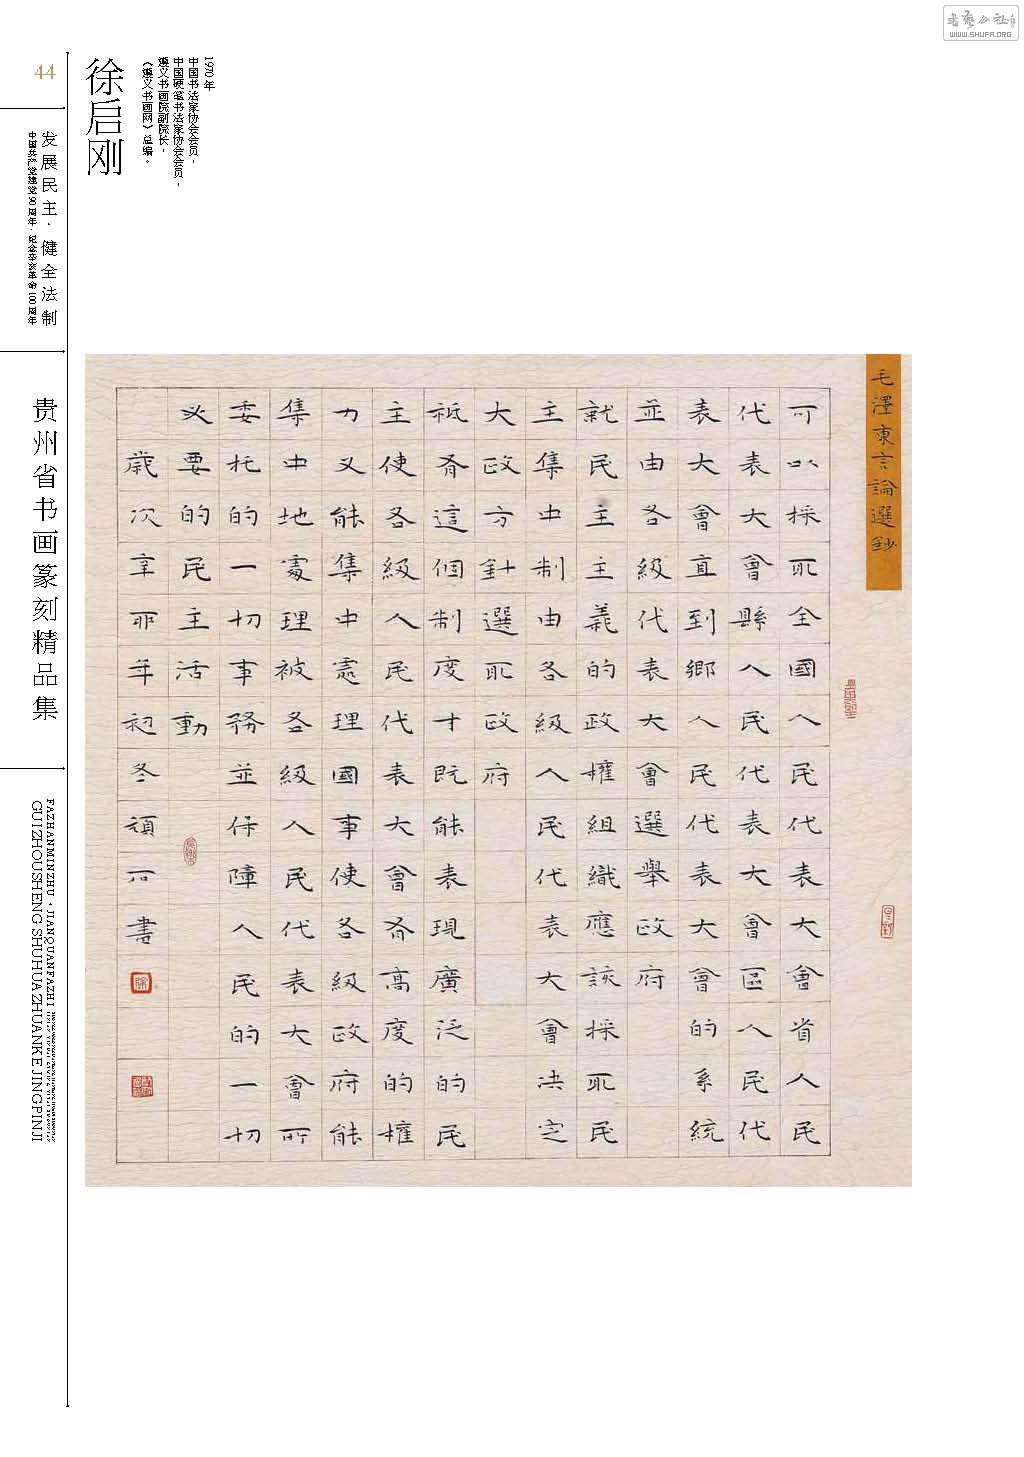 書藝公社
WWW.SHUFA.ORG
44
发展民主·健全法制
中国共产党建党90周年·纪念辛亥革命100周年
贵州省书画篆刻精品集
FAZHANMINZHU·JIANQUANFAZHI
GUIZHOUSHENG SHUHUAZHUANKE JINGPINJI
徐启刚
1970年
中国书法家协会会员，
中国硬笔书法家协会会员，
遵义书画院副院长，
《遵义书画网》总编。
毛澤東言論選鈔
可以採取全國人民代表大會省人民
代表大會縣人民代表大會區人民代
表大會直到鄉人民代表大會的系統
並由各級代表大會選舉政府
就民主主義的政權組織應該採取民
主集中制由各級人民代表大會決定
大政方針選取政府
祇有這個制度才既能表現廣泛的民
主使各級人民代表大會有高度的權
力又能集中處理國事使各級政府能
集中地處理被各級人民代表大會所
委托的一切事務並保障人民的一切
必要的民主活動
歲次辛卯年初冬頑石書